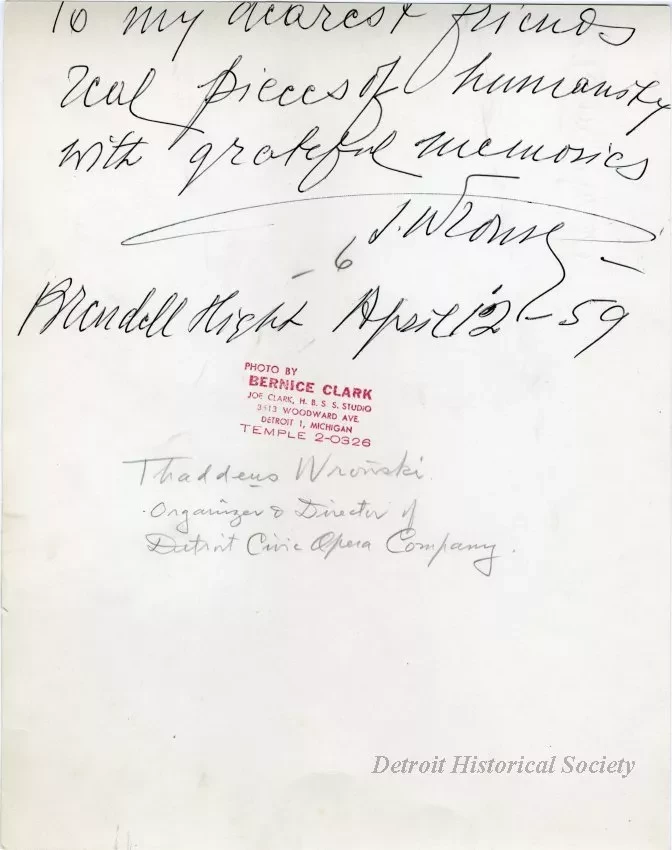 To my dearest friends
real pieces of humanity
with grateful memories
T. Wronski
- 6
Brendell Hight April 12 - 59
PHOTO BY
BERNICE CLARK
JOE CLARK, H. B. S. S. STUDIO
3413 WOODWARD AVE.
DETROIT 1, MICHIGAN
TEMPLE 2-0326
Thaddeus Wroński.
Organizer & Director of
Detroit Civic Opera Company.
Detroit Historical Society